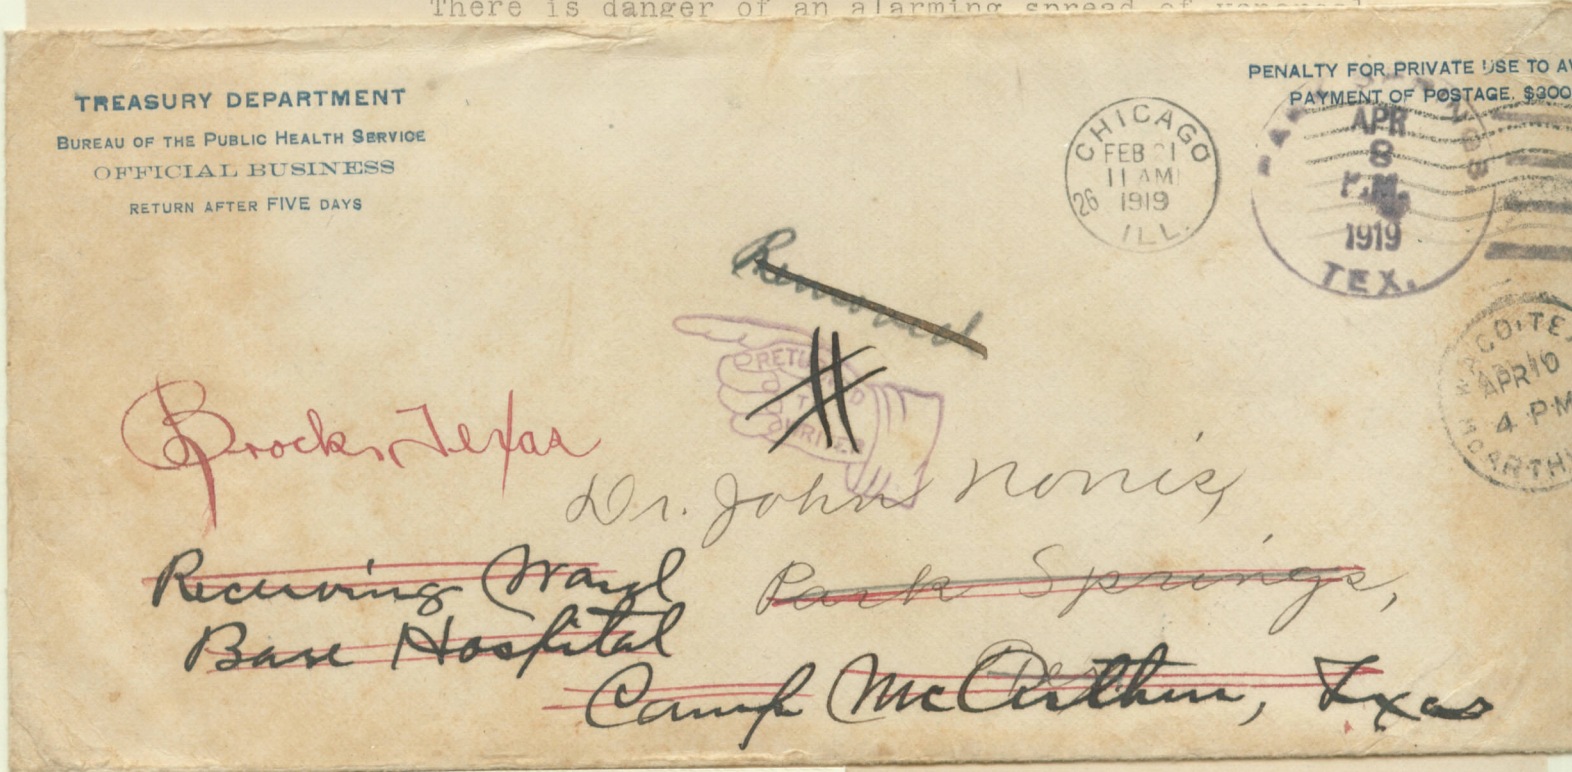 There is danger of an alarming spread of venereal
TREASURY DEPARTMENT
BUREAU OF THE PUBLIC HEALTH SERVICE
OFFICIAL BUSINESS
RETURN AFTER FIVE DAYS
PENALTY FOR PRIVATE USE TO AV
PAYMENT OF POSTAGE, $300
CHICAGO
FEB 21
11 AM
1919
26
ILL.
APR
8
P.M.
1919
TEX.
WACO, TE
APR 10
4 P.M
McARTH
Removed
RETURNED
TO
WRITER
Brock, Texas
Dr. John Norris,
Receiving Ward
Park Springs,
Base Hospital
Tex.
Camp McArthur, Texas